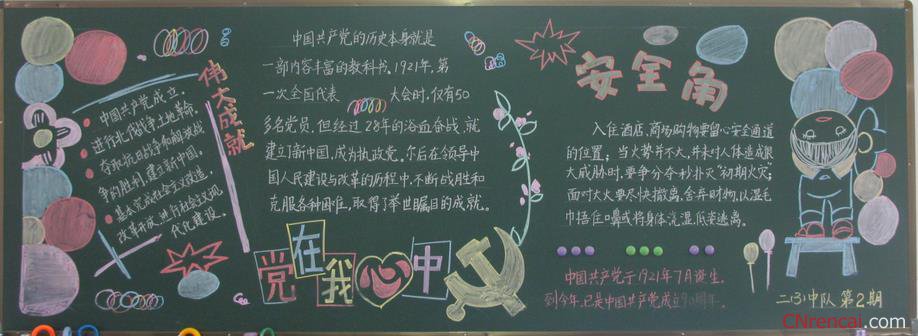 伟大成就
中国共产党成立.
进行北伐战争土地革命.
夺取抗日战争和解放战
争的胜利.建立新中国.
基本完成社会主义改造.
改革开放.进行社会主义现
代化建设.
中国共产党的历史本身就是
一部内容丰富的教科书。1921年,第
一次全国代表大会时,仅有50
多名党员,但经过28年的浴血奋战,就
建立了新中国,成为执政党。尔后在领导中
国人民建设与改革的历程中,不断战胜和
克服各种困难,取得了举世瞩目的成就。
党在我心中
安全角
入住酒店、商场购物要留心安全通道
的位置;当火势并不大,并未对人体造成很
大威胁时,要争分夺秒扑灭“初期火灾;
面对大火要尽快撤离,舍弃财物,以湿毛
巾捂住口鼻或将身体浇湿低姿逃离。
中国共产党于1921年7月诞生.
到今年,已是中国共产党成立90周年.
二(3)中队 第2期
CNrencai.com